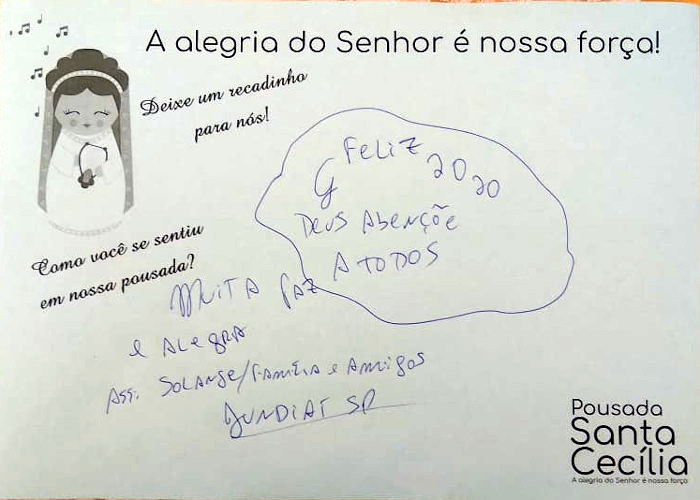 A alegria do Senhor é nossa força!
Deixe um recadinho
para nós!
FELIZ 2020
DEUS ABENÇÕE
A TODOS
Como você se sentiu
em nossa pousada?
MUITA PAZ
E ALEGRA
ASS. SOLANGE/FAMÍLIA E AMIGOS
JUNDIAÍ SP
Pousada
Santa
Cecília
A alegria do Senhor é nossa força